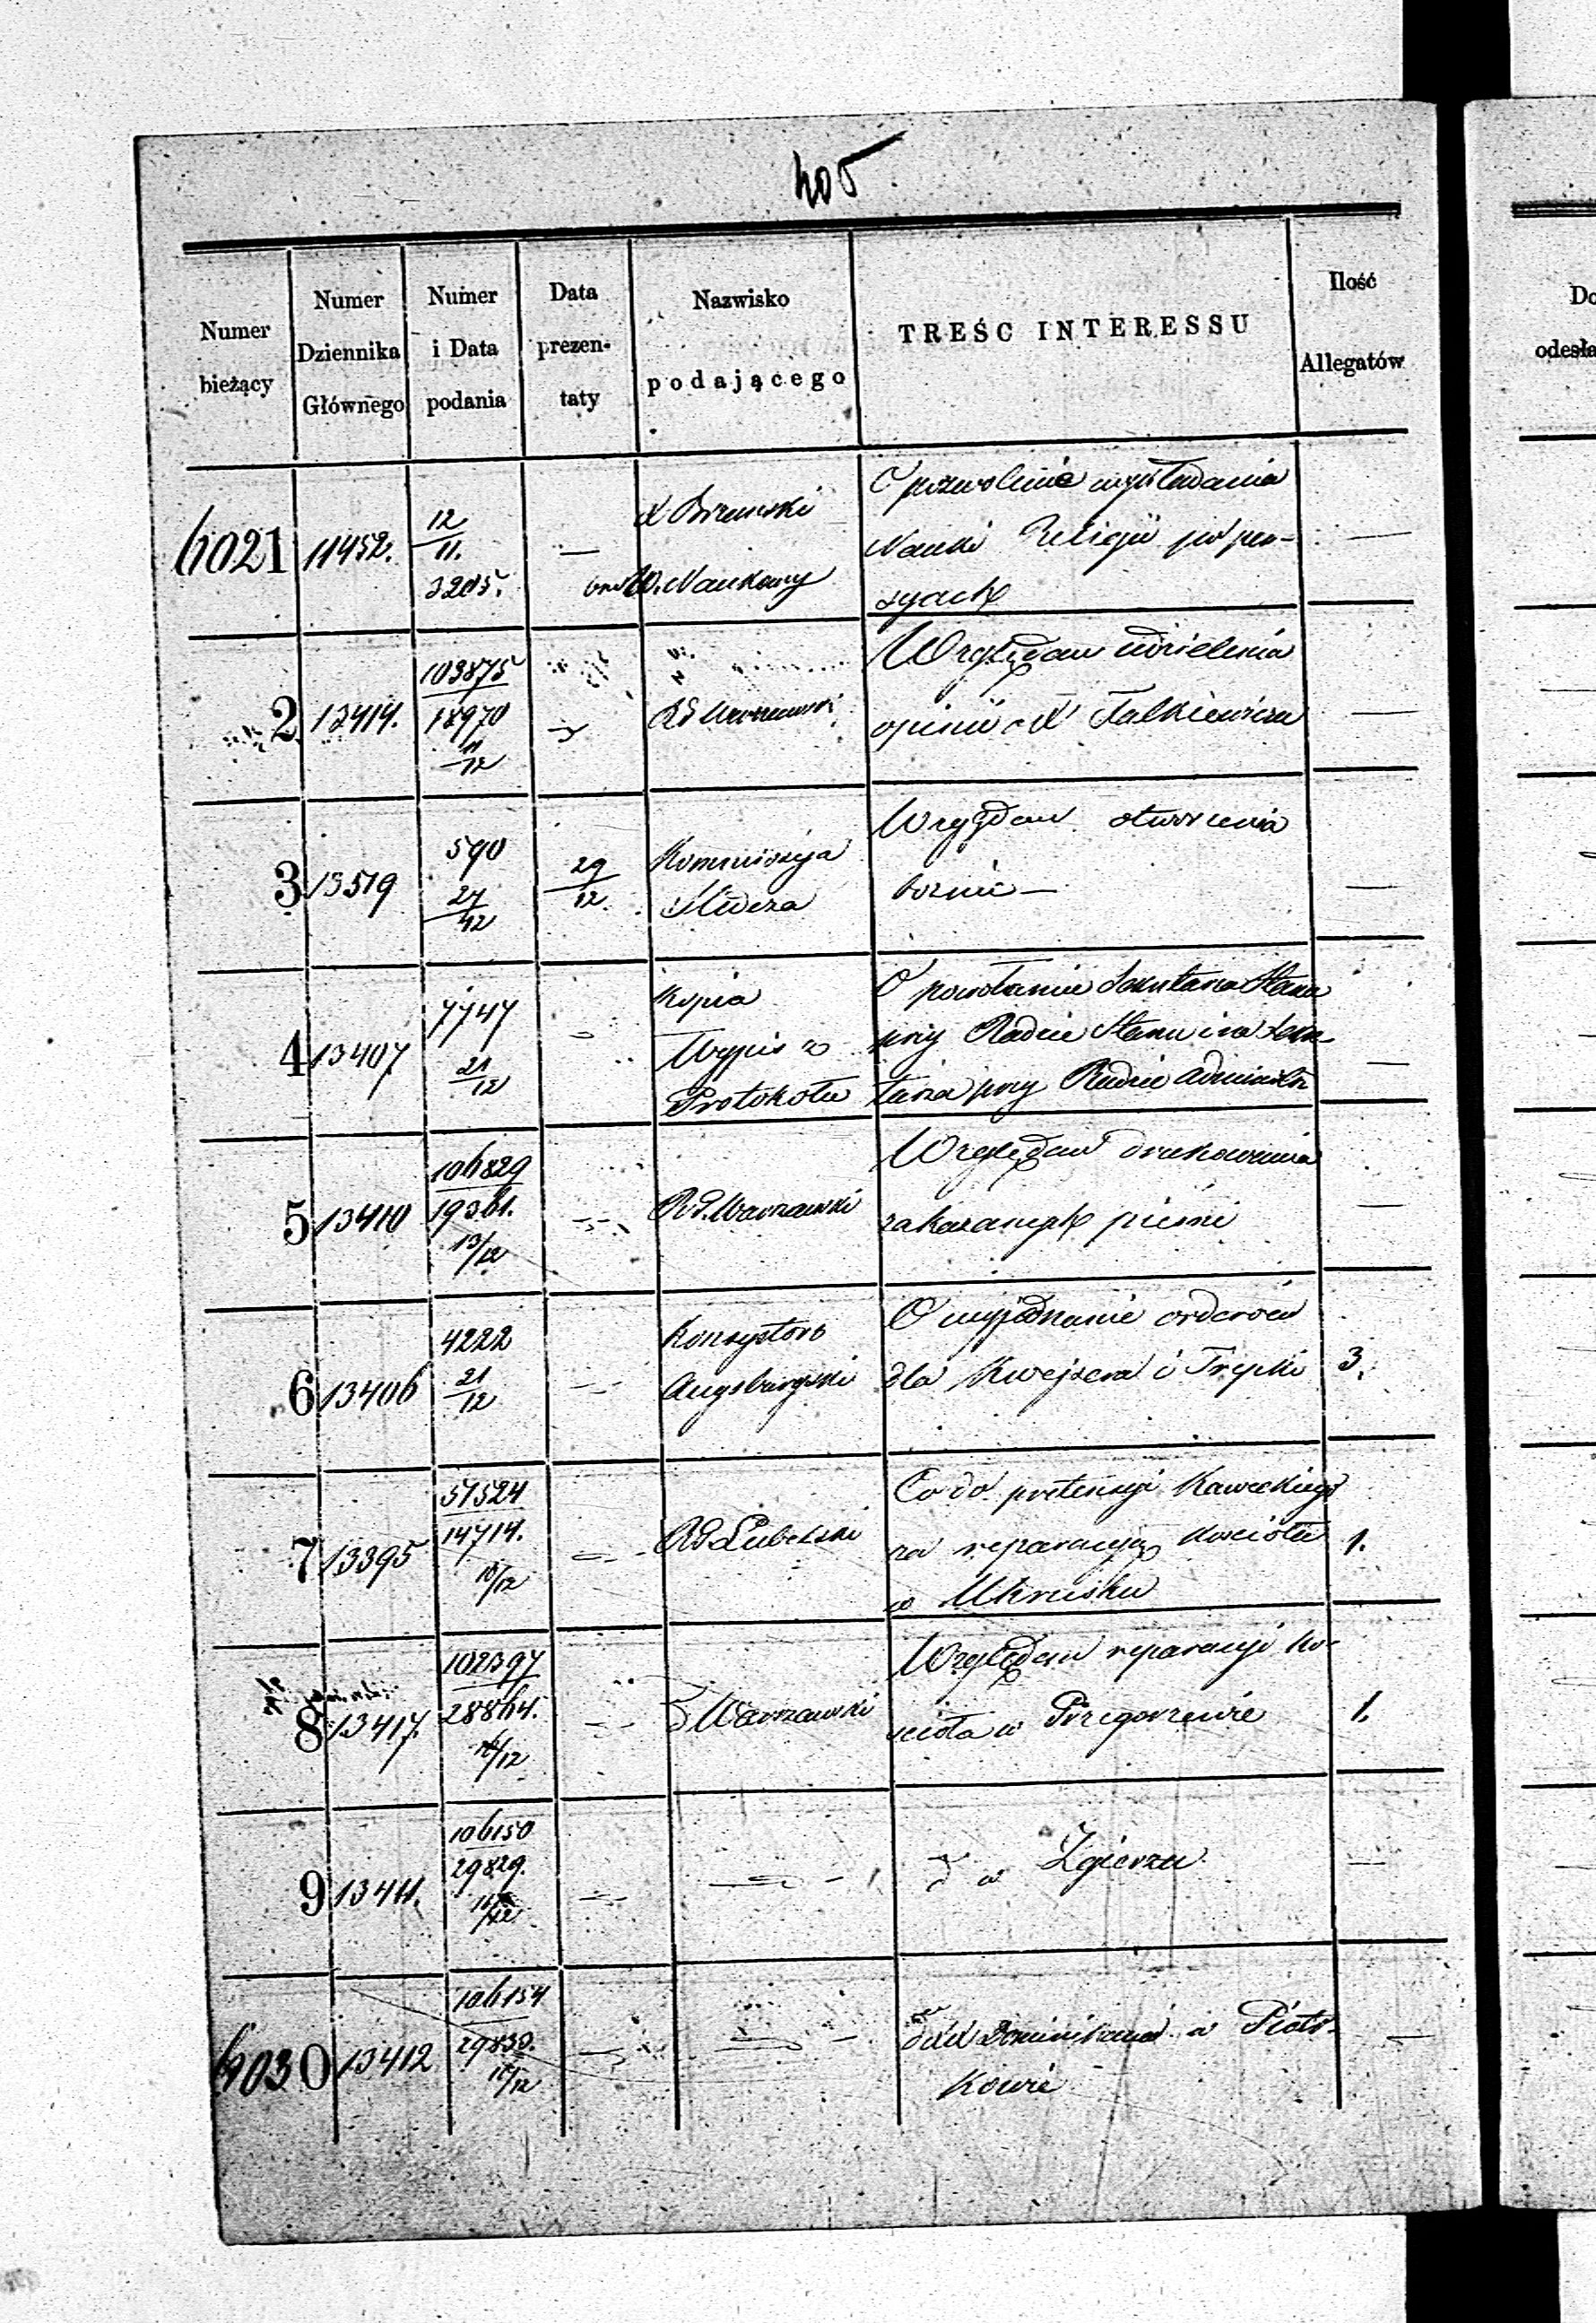 405
Numer bieżący
Numer Dziennika Głównego
Numer i Data podania
Data prezen-taty
Nazwisko podającego
TREŚC INTERESSU
Ilość Allegatów
Do
odesła
6021 11452. 12/11. 3205. —
X
W. Naukowy
O pozwolenie wykładania
Nauki Religii po pen-
syach
—
2 13414. 103875 18970 11/12
RG Warszawski
Względem udzielenia
opinii o X Falkiewiczu
—
3 13519 590 27/12 29/12
Kommissya
Śledcza
Względem otworzenia
bożnic —
—
4 13407 7747 21/12
Kopia
Wypis z
Protokołu
O powołanie Sekretarza Stanu
przy Radzie Stanu i na Sekre-
tarza przy Radzie Administr
—
5 13410 106829 19361. 13/12
RG. Warszawski
Względem drukowania
zakazanych pieśni
—
6 13406 4222 21/12
Konsystorz
Augsburgski
O wyjednanie orderów
dla Kwejsera i Trypki
3.
7 13395 57524 14714. 10/12
RG Lubelski
Co do pretensyi Kaweckiego
za reparacyą kościoła
w Uhrusku
1.
8 13417. 102397 28864. /12
d Warszawski
Względem reparacyi ko-
ścioła w Przegorzewie
1.
9 13411. 106150 29829. /12
d w Zgierzu
—
6030 13412 106154 29830. 10/12
XX Dominikanów w Piotr-
kowie
—